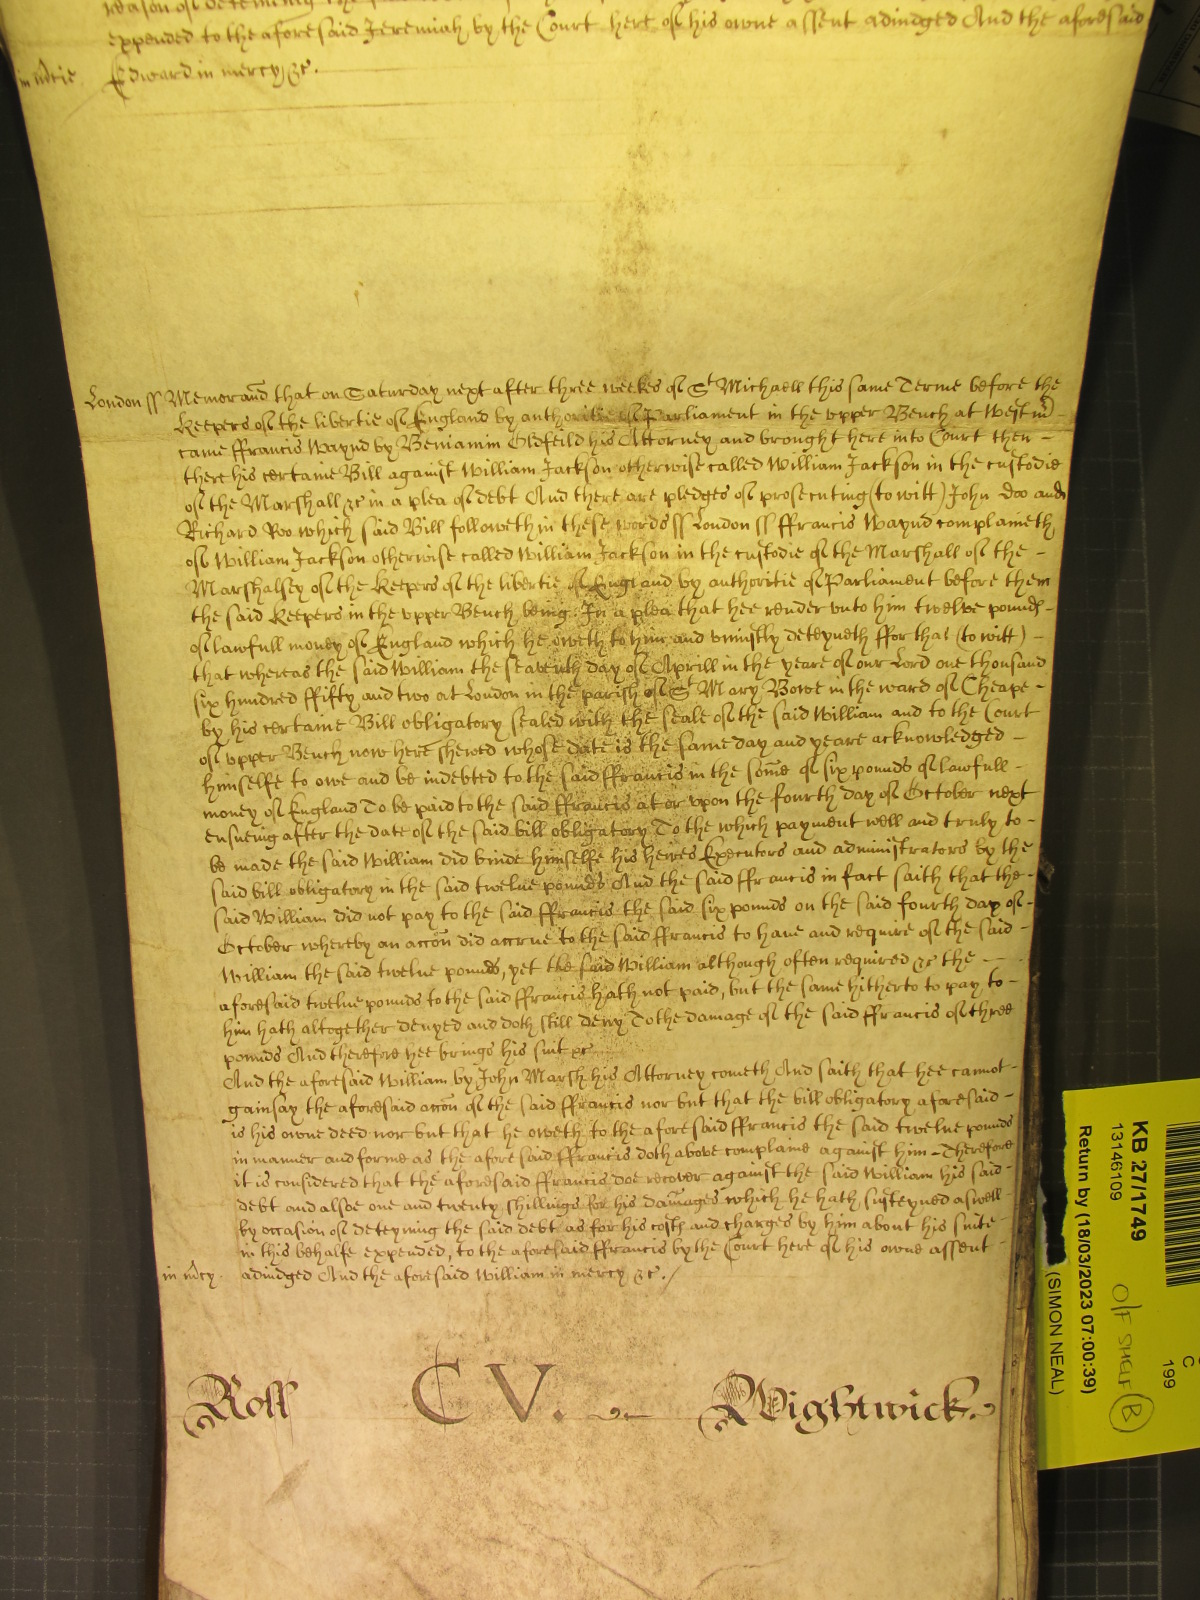 reason of deteining the
expended to the aforesaid Jeremiah by the Court here of his owne assent adiudged And the aforesaid
in mcie. Edward in mercy &c.
London ss Memorand that on Saturday next after three weekes of St Michaell this same Terme before the
Keepers of the libertie of England by authoritie of Parliament in the vpper Bench at Westm
came ffrancis Waynd by Beniamin Oldfeild his Attorney and brought here into Court then
there his certaine Bill against William Jackson otherwise called William Jackson in the custodie
of the Marshall &c in a plea of debt And there are pledges of prosecuting (to witt) John Doo and
Richard Roo which said Bill followeth in these words ss London ss ffrancis Waynd complaineth
of William Jackson otherwise called William Jackson in the custodie of the Marshall of the
Marshalsey of the Keepers of the libertie of England by authoritie of Parliament before them
the said Keepers in the vpper Bench being. In a plea that hee render vnto him twelve pounds
of lawfull money of England which he oweth to him and vniustly deteyneth ffor that (to witt)
that whereas the said William the seaventh day of Aprill in the yeare of our Lord one thousand
six hundred ffifty and two at London in the parish of St Mary Bowe in the ward of Cheape
by his certaine Bill obligatory sealed with the seale of the said William and to the Court
of vpper Bench now here shewed whose date is the same day and yeare acknowledged
himselfe to owe and be indebted to the said ffrancis in the some of six pounds of lawfull
money of England To be paid to the said ffrancis at or vpon the fourth day of October next
ensueing after the date of the said bill obligatory To the which payment well and truly to
be made the said William did binde himselfe his heires Executors and administrators by the
said bill obligatory in the said twelue pounds And the said ffrancis in fact saith that the
said William did not pay to the said ffrancis the said six pounds on the said fourth day of
October whereby an accon did accrue to the said ffrancis to haue and require of the said
William the said twelue pounds, yet the said William although often required &c the
aforesaid twelue pounds to the said ffrancis hath not paid, but the same hitherto to pay to
him hath altogether denyed and doth still deny To the damage of the said ffrancis of three
pounds And therefore hee brings his suit &c
And the aforesaid William by John Marsh his Attorney cometh And saith that hee cannot
gainsay the aforesaid accon of the said ffrancis nor but that the bill obligatory aforesaid
is his owne deed nor but that he oweth to the aforesaid ffrancis the said twelue pounds
in manner and forme as the aforesaid ffrancis doth above complaine against him Therefore
it is considered that the aforesaid ffrancis doe recover against the said William his said
debt and alsoe one and twenty shillings for his damages which he hath susteyned aswell
by occasion of deteyning the said debt as for his costs and charges by him about his suite
in this behalfe expended, to the aforesaid ffrancis by the Court here of his owne assent
in mcy. adiudged And the aforesaid William in mercy &c./
Roll CV. Wightwick.
KB 27/1749
13146109
Return by (18/03/2023 07:00:39)
(SIMON NEAL)
O/F SHELF B
C
199